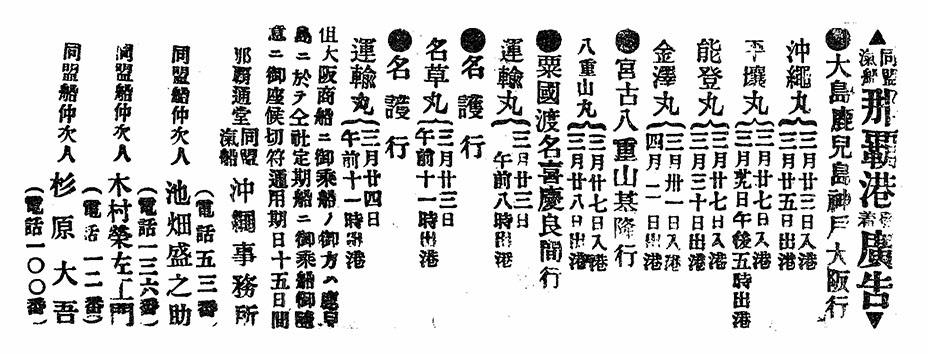 ▲同盟汽船 那覇港發着廣告▼
●大島鹿兒島神戸大阪行
沖繩丸{三月廿三日入港
三月廿五日出港
平壤丸{三月廿七日入港
三月廿九日午後五時出港
能登丸{三月廿七日入港
三月三十日出港
金澤丸{三月卅一日入港
四月一日出港
●宮古八重山基隆行
八重山丸{三月廿七日入港
三月廿八日出港
●粟國渡名喜慶良間行
運輸丸{三月廿三日
午前八時出港
●名護行
名草丸{三月廿三日
午前十一時出港
●名護行
運輸丸{三月廿四日
午前十一時出港
但大阪商船ニ御乘船ノ御方ハ鹿兒
島ニ於テ仝社定期船ニ御乘船御隨
意ニ御座候切符通用期日十五日間
那覇通堂 同盟汽船 沖繩事務所
(電話五三番)
同盟船仲次人 池畑盛之助
(電話一三六番)
同盟船仲次人 木村榮左工門
(電話一二番)
同盟船仲次人 杉原大吾
(電話一〇〇番)